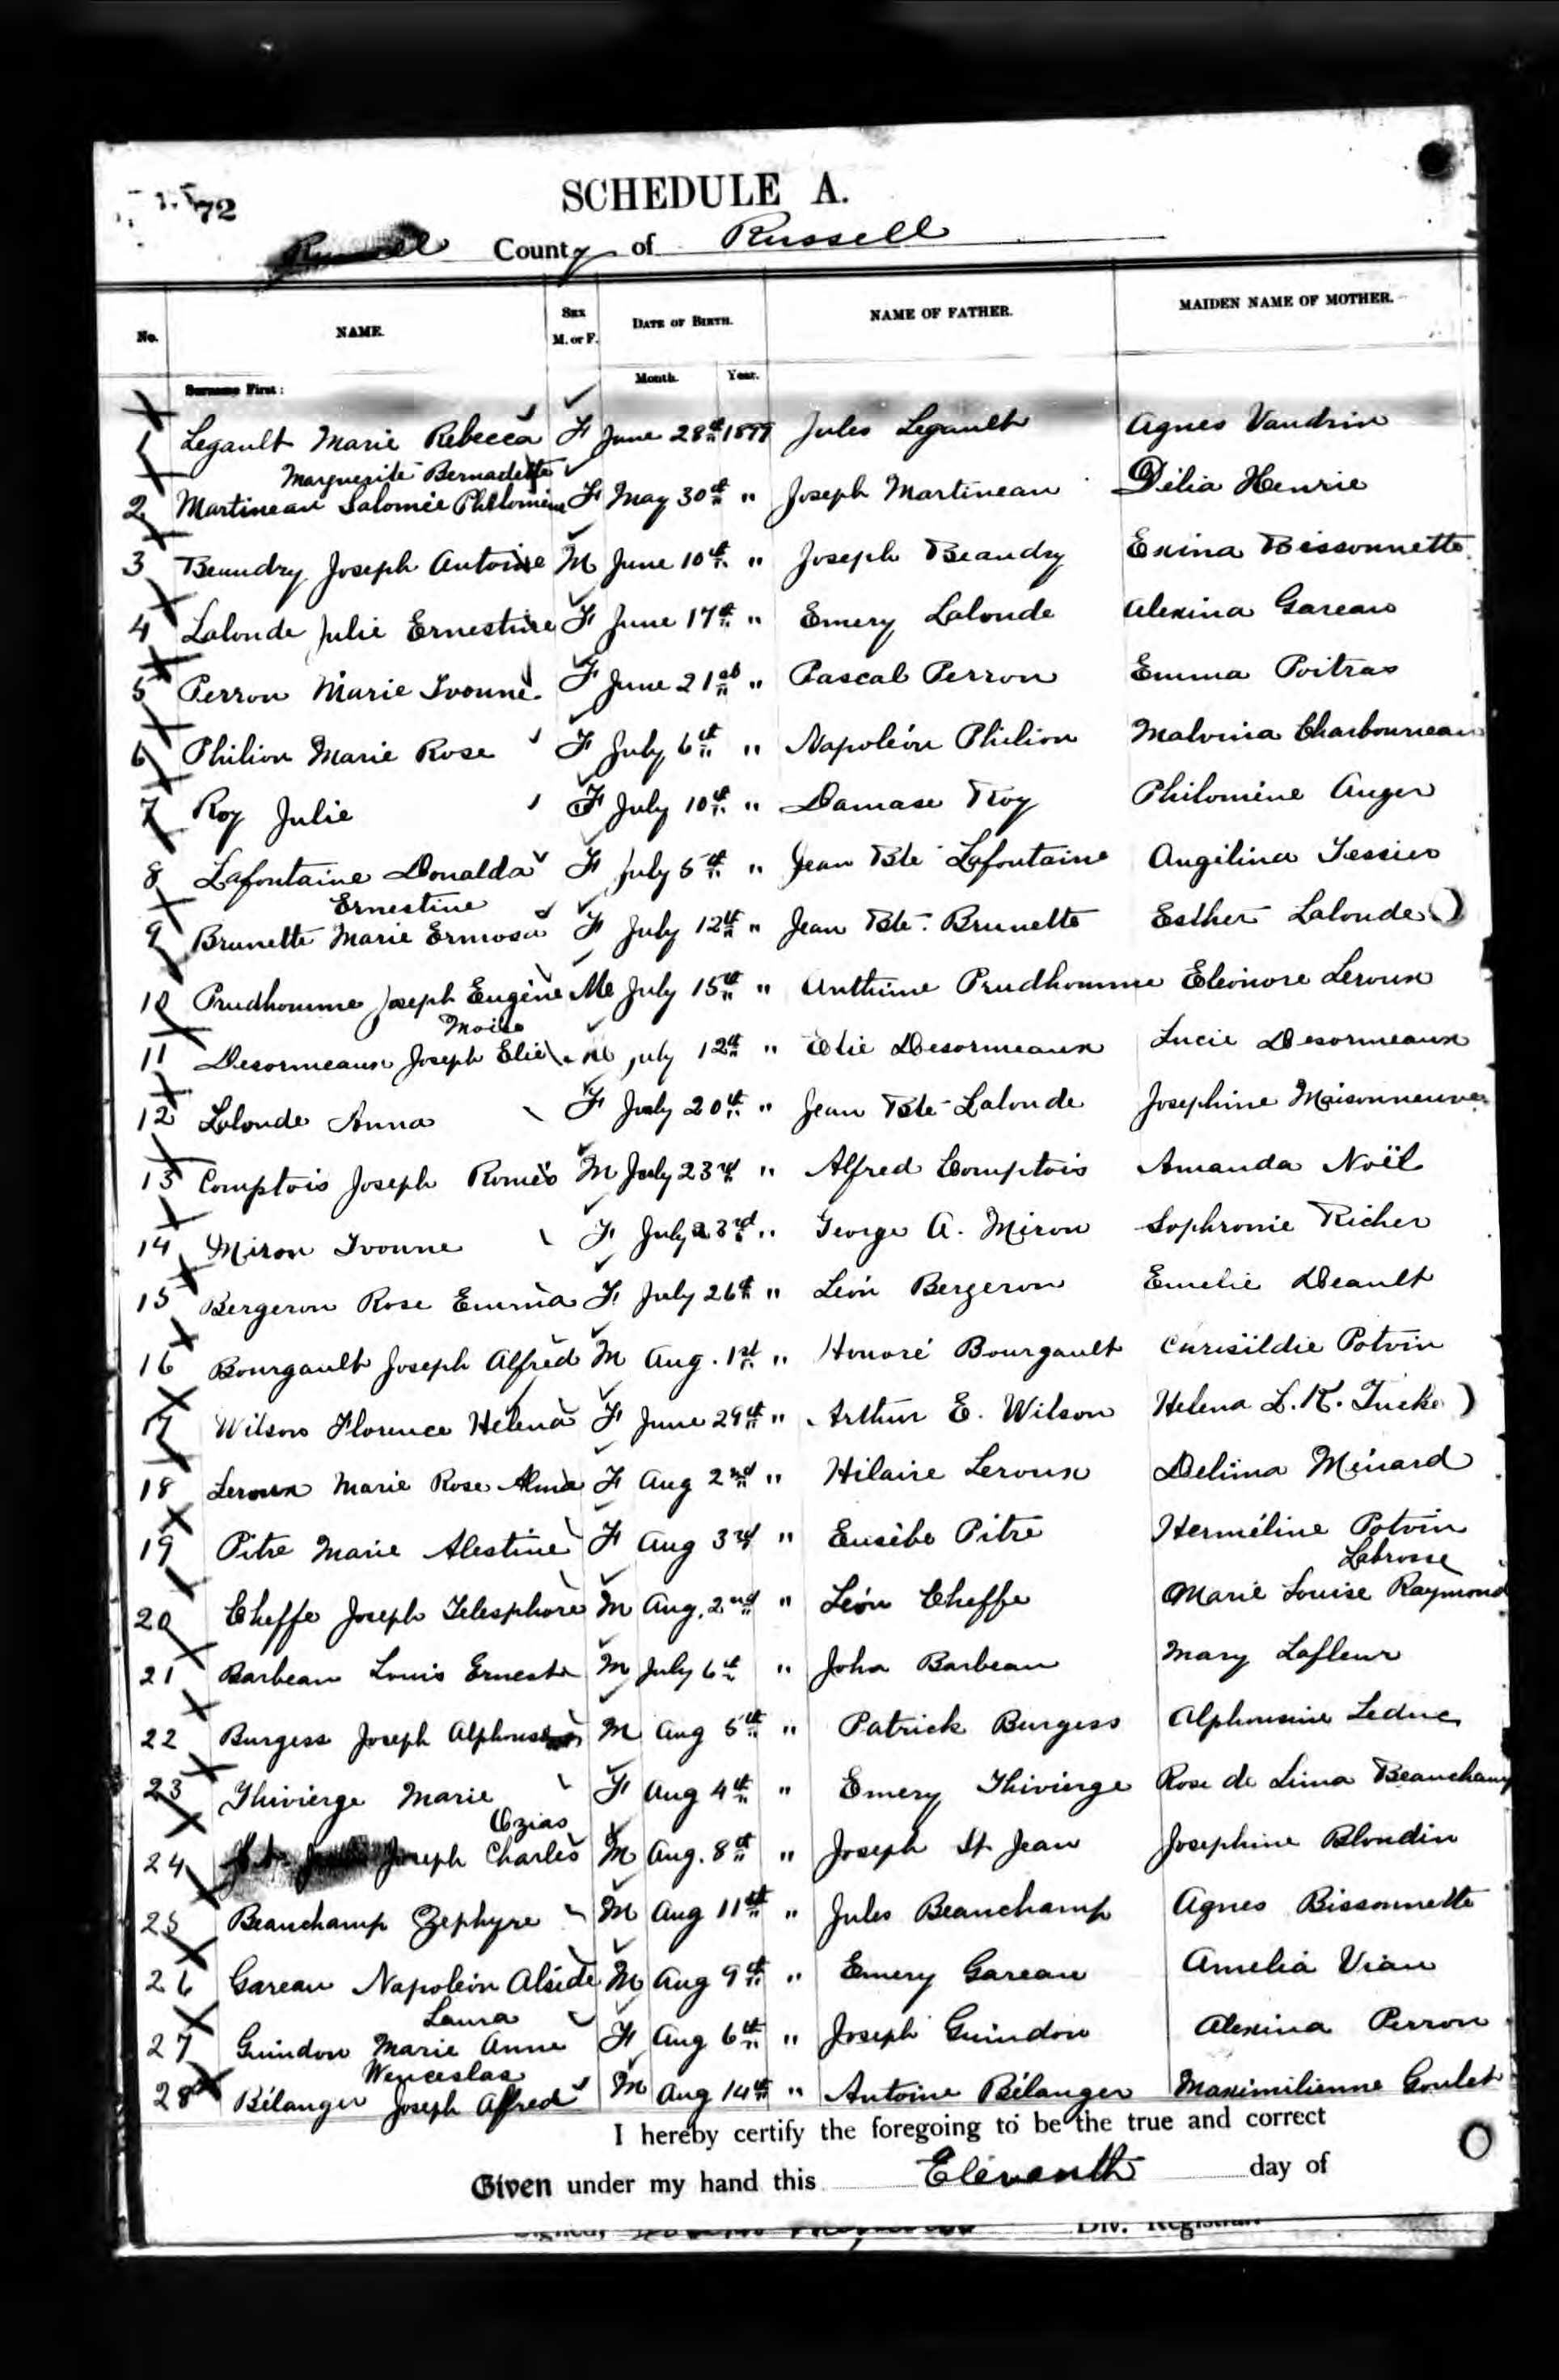 72
SCHEDULE A.
County of Russell
No.
NAME.
SEX M. or F.
DATE OF BIRTH.
NAME OF FATHER.
MAIDEN NAME OF MOTHER.
Surname First:
Month. Year.
1 Legault Marie Rebecca F June 28th 1899 Jules Legault Agnes Vaudrin
Marguerite Bernadette
2 Martineau Salomée Philomène F May 30th " Joseph Martineau Délia Henrie
3 Beaudry Joseph Antoine M June 10th " Joseph Beaudry Exina Bissonnette
4 Lalonde Julie Ernestine F June 17th " Emery Lalonde Alexina Gareau
5 Perron Marie Ivonne F June 21st " Pascal Perron Emma Poitras
6 Philion Marie Rose F July 6th " Napoléon Philion Malvina Charbonneau
7 Roy Julie F July 10th " Damase Roy Philomène Auger
8 Lafontaine Donalda F July 5th " Jean Bte Lafontaine Angélina Tessier
Ernestine
9 Brunette Marie Ermosa F July 12th " Jean Bte. Brunette Esther Lalonde
10 Prudhomme Joseph Eugène M July 15th " Anthime Prudhomme Eléonore Leroux
Moise
11 Desormeaux Joseph Elie M July 12th " Elie Desormeaux Lucie Desormeaux
12 Lalonde Anna F July 20th " Jean Bte Lalonde Josephine Maisonneuve
13 Comptois Joseph Roméo M July 23rd " Alfred Comptois Amanda Noël
14 Miron Ivonne F July 23rd " George A. Miron Sophronie Richer
15 Bergeron Rose Emma F July 26th " Léon Bergeron Emelie Deault
16 Bourgault Joseph Alfred M Aug. 1st " Honoré Bourgault Potvin
17 Wilson Florence Helena F June 29th " Arthur E. Wilson Helena L. K.
18 Leroux Marie Rose Alma F Aug 2nd " Hilaire Leroux Delima Ménard
19 Pitre Marie Alestine F Aug 3rd " Eusèbe Pitre Herméline Potvin
Labrosse
20 Cheffe Joseph Telesphore M Aug. 2nd " Léon Cheffe Marie Louise Raymond
21 Barbeau Louis Ernest M July 6th " John Barbeau Mary Lafleur
22 Burgess Joseph Alphonse M Aug 5th " Patrick Burgess Alphonsine Leduc
23 Thivierge Marie F Aug 4th " Emery Thivierge Rose de Lima Beauchamp
Ozias
24 Joseph Charles M Aug. 8th " Joseph St Jean Josephine Blondin
25 Beauchamp Zephyre M Aug 11th " Jules Beauchamp Agnes Bissonnette
26 Gareau Napoléon Alside M Aug 9th " Emery Gareau Amelia Viau
Laura
27 Guindon Marie Anne F Aug 6th " Joseph Guindon Alexina Perron
Wenceslas
28 Bélanger Joseph Alfred M Aug 14th " Antoine Bélanger Maximilienne Goulet
I hereby certify the foregoing to be the true and correct
Given under my hand this Eleventh day of
Signed, Div. Registrar